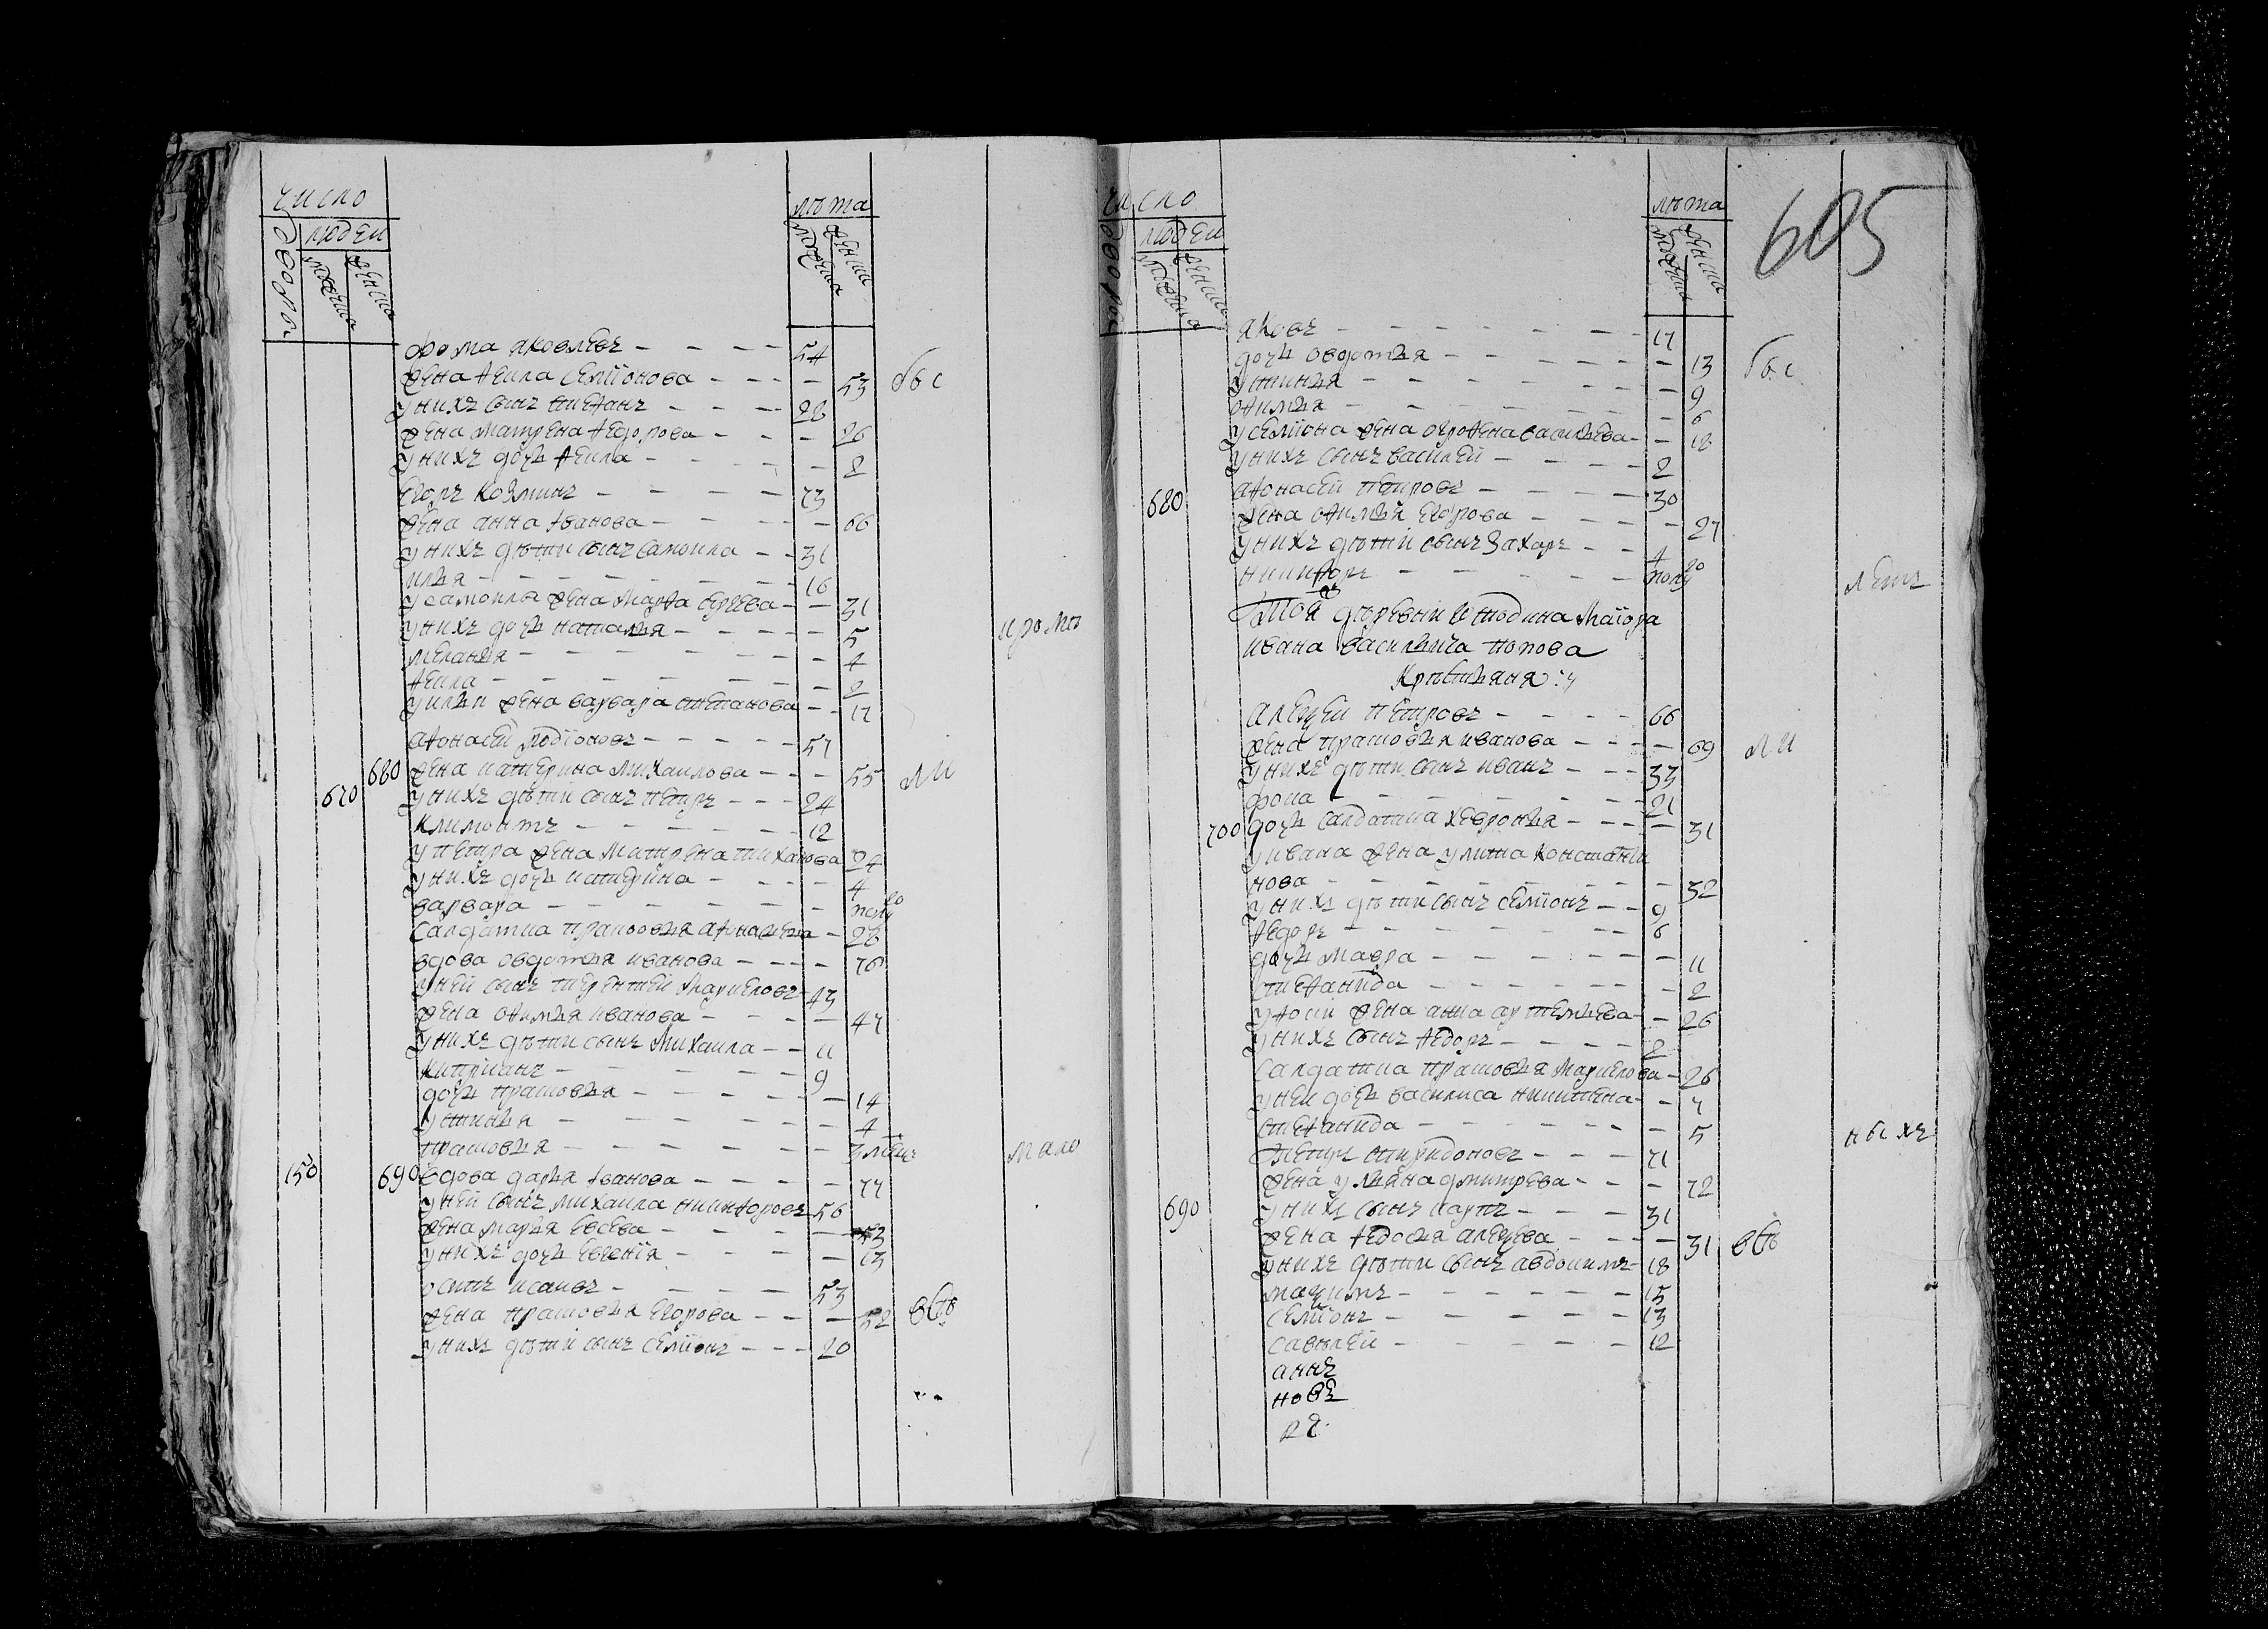 число
лѣта
людеи
дворовъ
мужеска
женска
мужеска
женска
Фома яковлевъ 54
жена Ѳекла семионова 53 бы с
у нихъ сынъ стиѲанъ 28
жена матрена Ѳедорова 26
у нихъ дочь Ѳекла 2
Егоръ козминъ 73
жена анна Iванова 66
у нихъ дѣти сынъ самоила 31
илья 16
у самоилы жена марѲа сергеева 31
у нихъ дочь наталья 5 кроме
меланья 4
Ѳекла 2
у ильи жена варвара степанова 17
аѲонасеи родионовъ 57
680 жена катерина михаилова 55 ли
670 у нихъ дѣти сынъ петръ 24
климонтъ 12
у петра жена матрена тиханова 24
у нихъ дочь катерина 4
варвара полу го
салдатка прасковья аѲонасьева 28
вдова овдотья иванова 76
у неи сынъ терентеи маркеловъ 43
жена оѲимья иванова 47
у нихъ дѣти сынъ михаила 11
киприянъ 9
дочь прасковья 14
устинья 4
прасковья 3 мѣсец
мало
150 690 вдова дарья Iванова 77
у неи сынъ михаила никиѲоровъ 56
жена марья евсева 53
у нихъ дочь евгения 13
осипъ исаивъ 53
жена прасковья егорова 52 въ
у нихъ дѣти сынъ семионъ 20
605
число
лѣта
людеи
дворовъ
мужеска
женска
мужеска
женска
яковъ 17
дочь овдотья 13 бы с
устинья 9
оѲимья 6
у семиона жена огроѲена васильева 18
у нихъ сынъ василеи 2
680 аѲонасеи петровъ 30
жена оѲимья егорова 27
у нихъ дѣти сынъ захаръ 4
никиѲоръ полу го
летъ
Тои же деревни господина маиора
ивана васильича попова
крѣстьяня
алексеи петровъ 66
жена прасковья иванова 69 ли
у нихъ дѣти сынъ иванъ 33
фока 21
700 дочь салдатка хевронья 31
у ивана жена улита константи
нова 32
у нихъ дѣти сынъ семионъ 9
Ѳедоръ 6
дочь мавра 11
стеѲанида 2
у Ѳоки жена анна артемьева 26
у нихъ сынъ Ѳедоръ 2
салдатка прасковья маркелова 26
у неи дочь василиса никитена 7
стеѲанида 5
ны хъ
петръ спиридоновъ 71
жена ульяна дмитрева 72
690 у нихъ сынъ карпъ 31
жена Ѳедосья алексева 31 въ
у нихъ дѣти сынъ авдокимъ 18
максимъ 15
семионъ 13
савелеи 12
аннъ
новъ